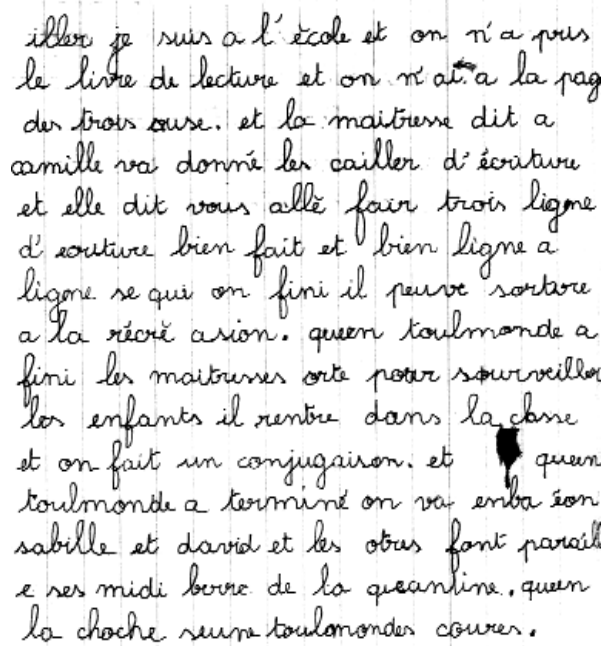 iller je suis a l'école et on n'a pris
le livre de lecture et on n'ai a la pag
des trois ouse. et la maitresse dit a
camille va donné les cailler d'écriture
et elle dit vous allé fair trois ligne
d'ecriture bien fait et bien ligne a
ligne se qui on fini il peuve sortire
a la récré asion. queen toulmonde a
fini les maitresses orte pour sourveiller
les enfants il rentre dans la classe
et on fait un conjugaison. et queen
toulmonde a terminé on va enba éon
sabille et david et les otres font pareill
e ses midi berre de la queantine. queen
la choche seune toulmondes coures.